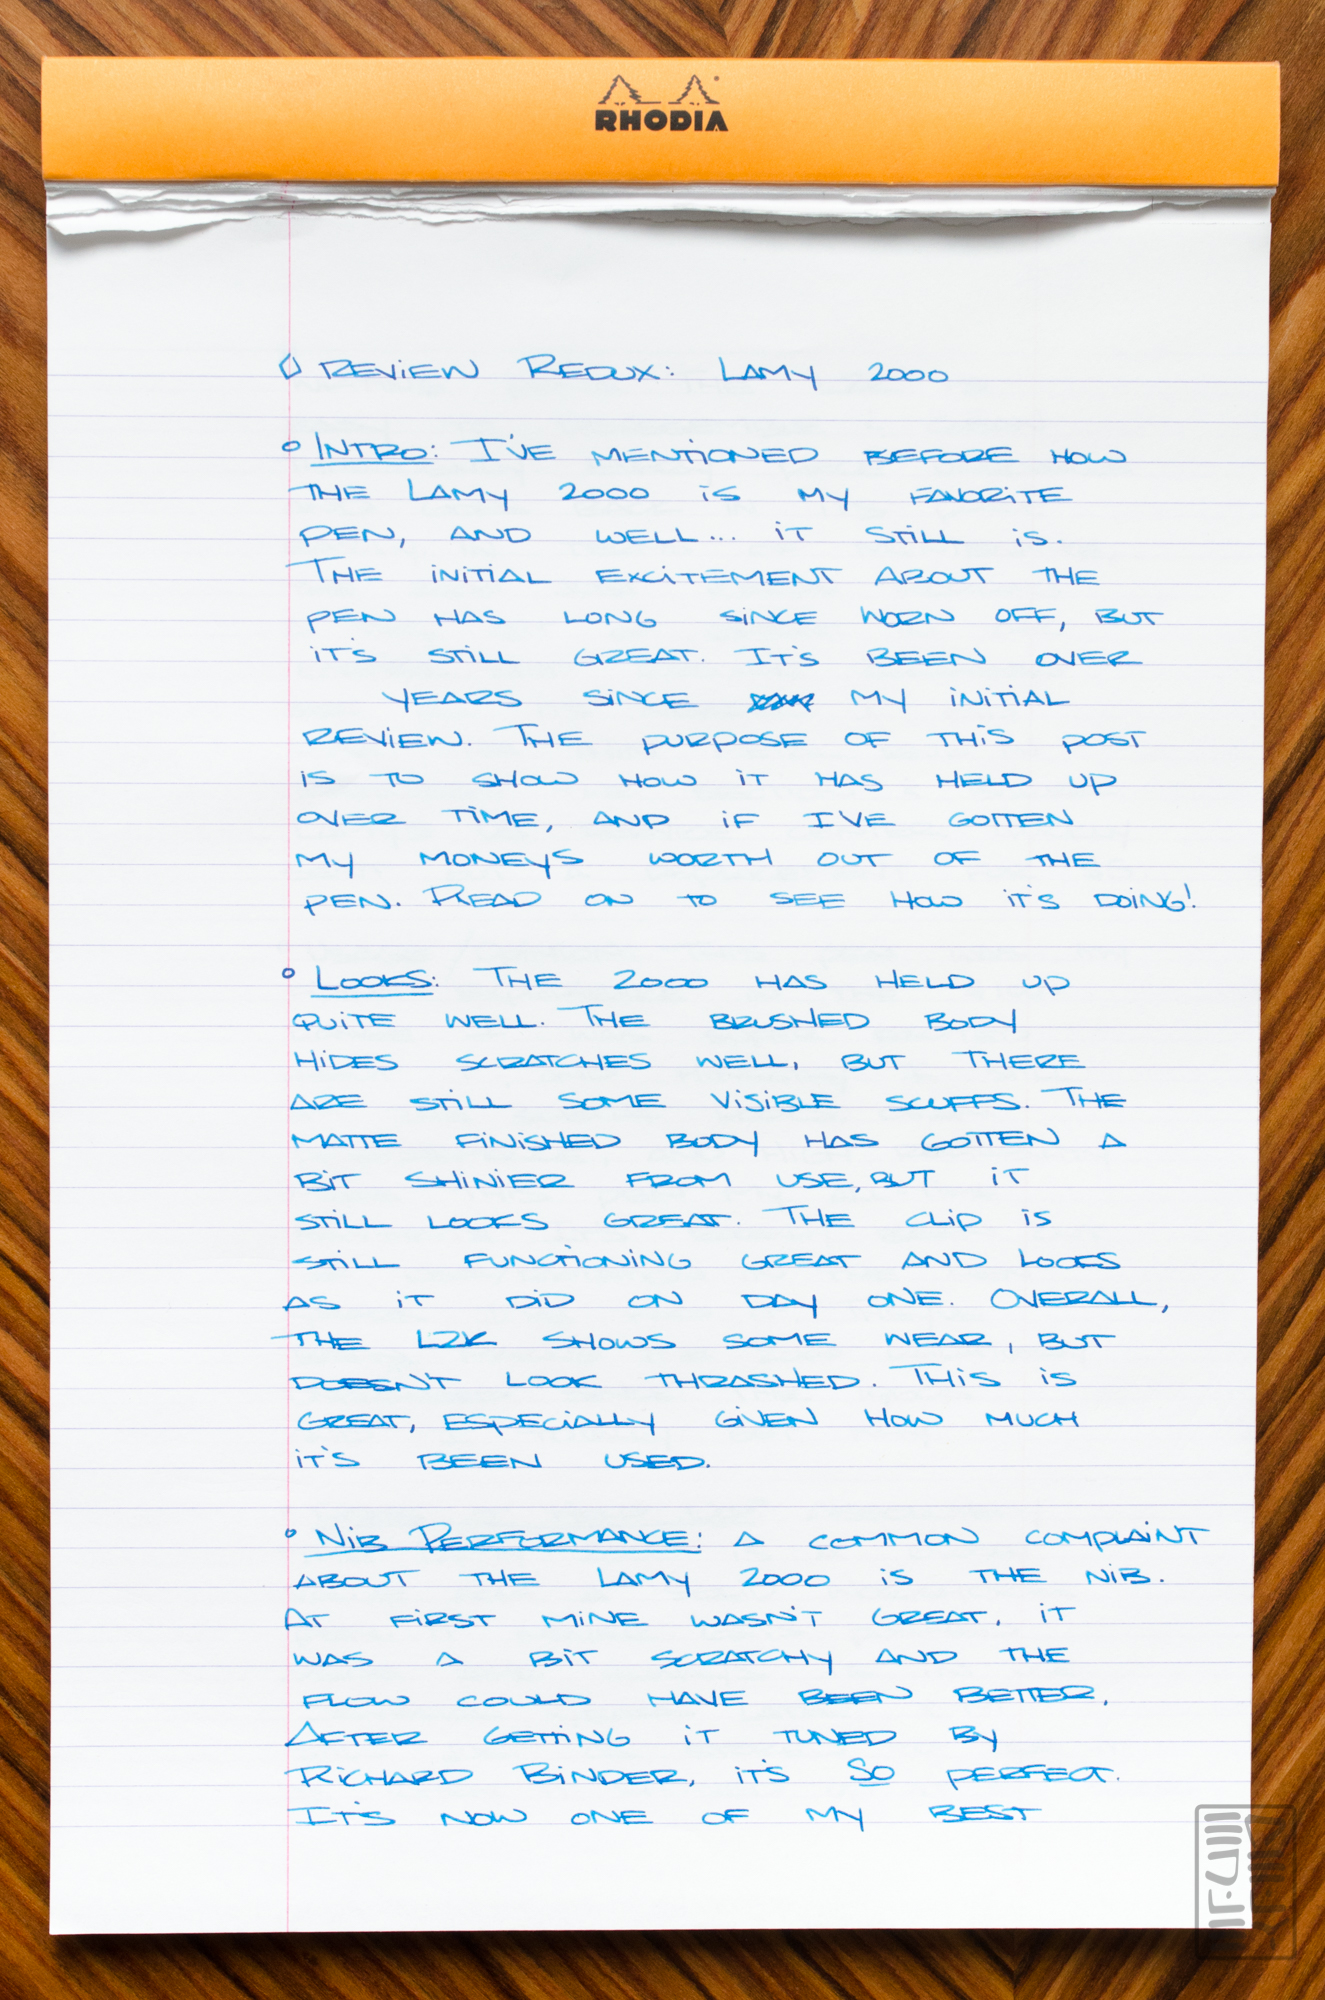 RHODIA
REVIEW REDUX: LAMY 2000
INTRO: I'VE MENTIONED BEFORE HOW
THE LAMY 2000 IS MY FAVORITE
PEN, AND WELL... IT STILL IS.
THE INITIAL EXCITEMENT ABOUT THE
PEN HAS LONG SINCE WORN OFF, BUT
IT'S STILL GREAT. IT'S BEEN OVER
YEARS SINCE MY INITIAL
REVIEW. THE PURPOSE OF THIS POST
IS TO SHOW HOW IT HAS HELD UP
OVER TIME, AND IF I'VE GOTTEN
MY MONEYS WORTH OUT OF THE
PEN. READ ON TO SEE HOW IT'S DOING!
LOOKS: THE 2000 HAS HELD UP
QUITE WELL. THE BRUSHED BODY
HIDES SCRATCHES WELL, BUT THERE
ARE STILL SOME VISIBLE SCUFFS. THE
MATTE FINISHED BODY HAS GOTTEN A
BIT SHINIER FROM USE, BUT IT
STILL LOOKS GREAT. THE CLIP IS
STILL FUNCTIONING GREAT AND LOOKS
AS IT DID ON DAY ONE. OVERALL,
THE L2K SHOWS SOME WEAR, BUT
DOESN'T LOOK THRASHED. THIS IS
GREAT, ESPECIALLY GIVEN HOW MUCH
IT'S BEEN USED.
NIB PERFORMANCE: A COMMON COMPLAINT
ABOUT THE LAMY 2000 IS THE NIB.
AT FIRST MINE WASN'T GREAT. IT
WAS A BIT SCRATCHY AND THE
FLOW COULD HAVE BEEN BETTER.
AFTER GETTING IT TUNED BY
RICHARD BINDER, IT'S SO PERFECT.
IT'S NOW ONE OF MY BEST